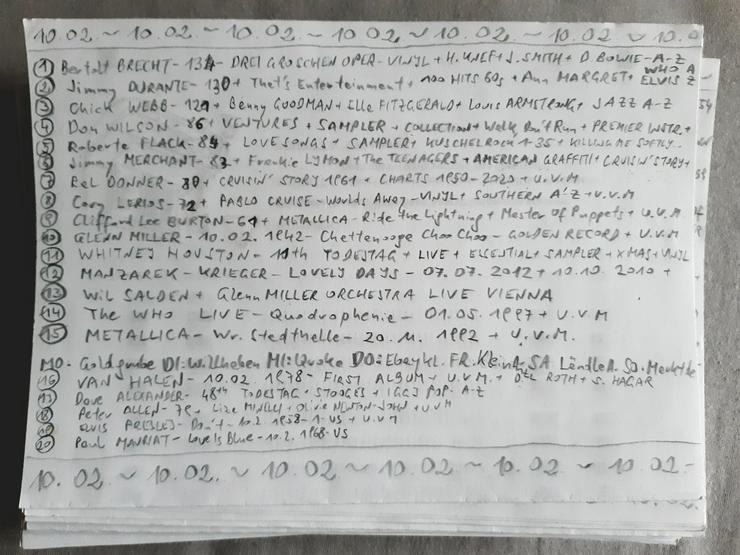 10.02 ~ 10.02. ~ 10.02. ~ 10.02 ~ 10.02 ~ 10.02 ~ 10.0
① Bertolt BRECHT - 134 - DREI GROSCHEN OPER - VINYL + H. KNEF + J. SMITH + D. BOWIE - A-Z
WHO A
② Jimmy DURANTE - 130 + That's Entertainment + 100 HITS 60s + Ann MARGRET + ELVIS Z
③ Chick WEBB - 121 + Benny GOODMAN + Ella FITZGERALD + Louis ARMSTRONG + JAZZ A-Z
④ Don WILSON - 86 + VENTURES + SAMPLER + COLLECTION + Walk Don't Run + PREMIER INSTR. +
⑤ Roberta FLACK - 84 + LOVESONGS + SAMPLER + KUSCHELROCK 1-35 + KILLING ME SOFTLY
⑥ Jimmy MERCHANT - 83 + Frankie LYMON + The TEENAGERS + AMERICAN GRAFFITI + CRUISIN' STORY +
⑦ Ral DONNER - 80 + CRUISIN' STORY 1961 + CHARTS 1950-2020 + U.V.M
⑧ Cory LERIOS - 72 + PABLO CRUISE - Worlds Away - VINYL + SOUTHERN A'Z + U.V.M
⑨ Clifford Lee BURTON - 61 + METALLICA - Ride the Lightning + Master of Puppets + U.V.M
⑩ GLENN MILLER - 10.02. 1942 - Chattanooga Choo Choo - GOLDEN RECORD + U.V.M
⑪ WHITNEY HOUSTON - 11th TODESTAG + LIVE + ESSENTIAL + SAMPLER + XMAS + VINYL
⑫ MANZAREK - KRIEGER - LOVELY DAYS - 07.07.2012 + 10.10.2010 +
⑬ WIL SALDEN + Glenn MILLER ORCHESTRA LIVE VIENNA
⑭ The WHO LIVE - Quadrophenia - 01.05.1997 + U.V.M
⑮ METALLICA - Wr. Stadthalle - 20.11.1992 + U.V.M.
MO. Goldgrube DI: Willhaben MI: Quoka DO: Ebay kl. FR. Kleina. SA Ländle A. So. Markt.de
⑯ VAN HALEN - 10.02.1978 - FIRST ALBUM + U.V.M. + ROTH + S. HAGAR
⑰ Dave ALEXANDER - 48th TODESTAG + STOOGES + IGGY POP - A-Z
⑱ Peter ALLEN - 79 + Liza MINELLI + Olivia NEWTON-JOHN + U.V.M
⑲ ELVIS PRESLEY - Don't - 10.2.1958 - 1-US + U.V.M
⑳ Paul MAURIAT - Love Is Blue - 10.2.1968 - US
10.02. ~ 10.02. ~ 10.02 ~ 10.02 ~ 10.02 ~ 10.02 ~ 10.02 -